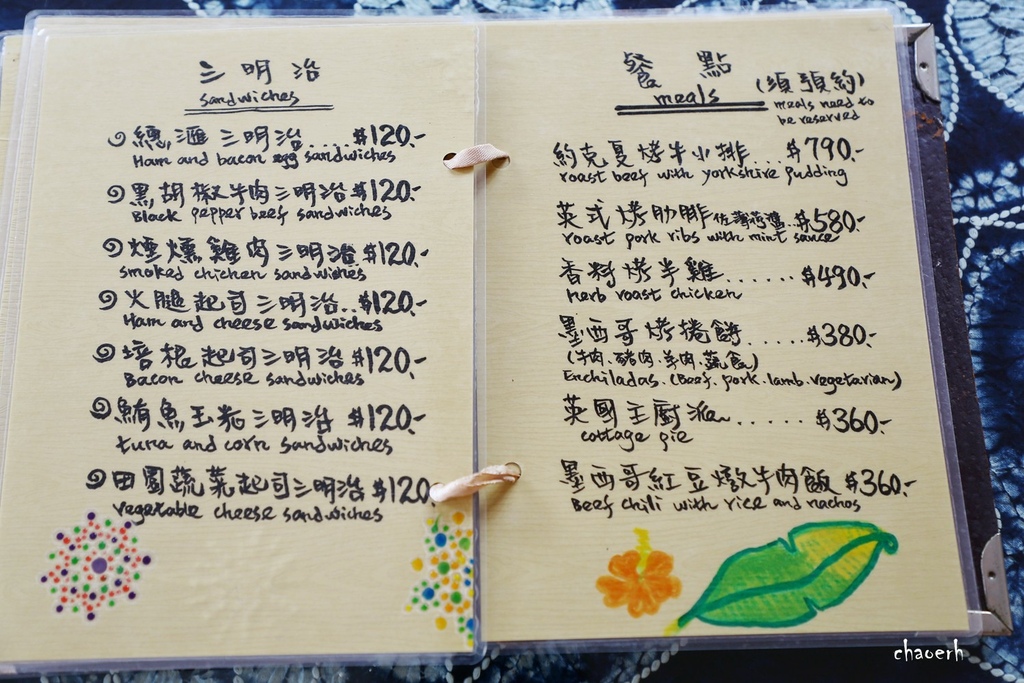 三明治
sandwiches
總滙三明治....$120.-
Ham and bacon egg sandwiches
黑胡椒牛肉三明治$120.-
Black pepper beef sandwiches
煙燻雞肉三明治$120.-
smoked chicken sandwiches
火腿起司三明治..$120.-
Ham and cheese sandwiches
培根起司三明治$120.-
Bacon cheese sandwiches
鮪魚玉米三明治$120.-
tuna and corn sandwiches
田園蔬菜起司三明治$120
vegetable cheese sandwiches
餐點
meals
(須預約)
meals need to
be reserved
約克夏烤牛小排...$790.-
roast beef with yorkshire pudding
英式烤肋排佐薄荷醬..$580.-
roast pork ribs with mint sauce
香料烤半雞.......$490.-
Herb roast chicken
墨西哥烤捲餅.....$380.-
(牛肉.豬肉.羊肉.蔬食)
Enchiladas.(Beef.pork.lamb.vegetarian)
英國主廚派......$360.-
cottage pie
墨西哥紅豆燉牛肉飯$360.-
Beef chili with rice and nachos
chaoerh